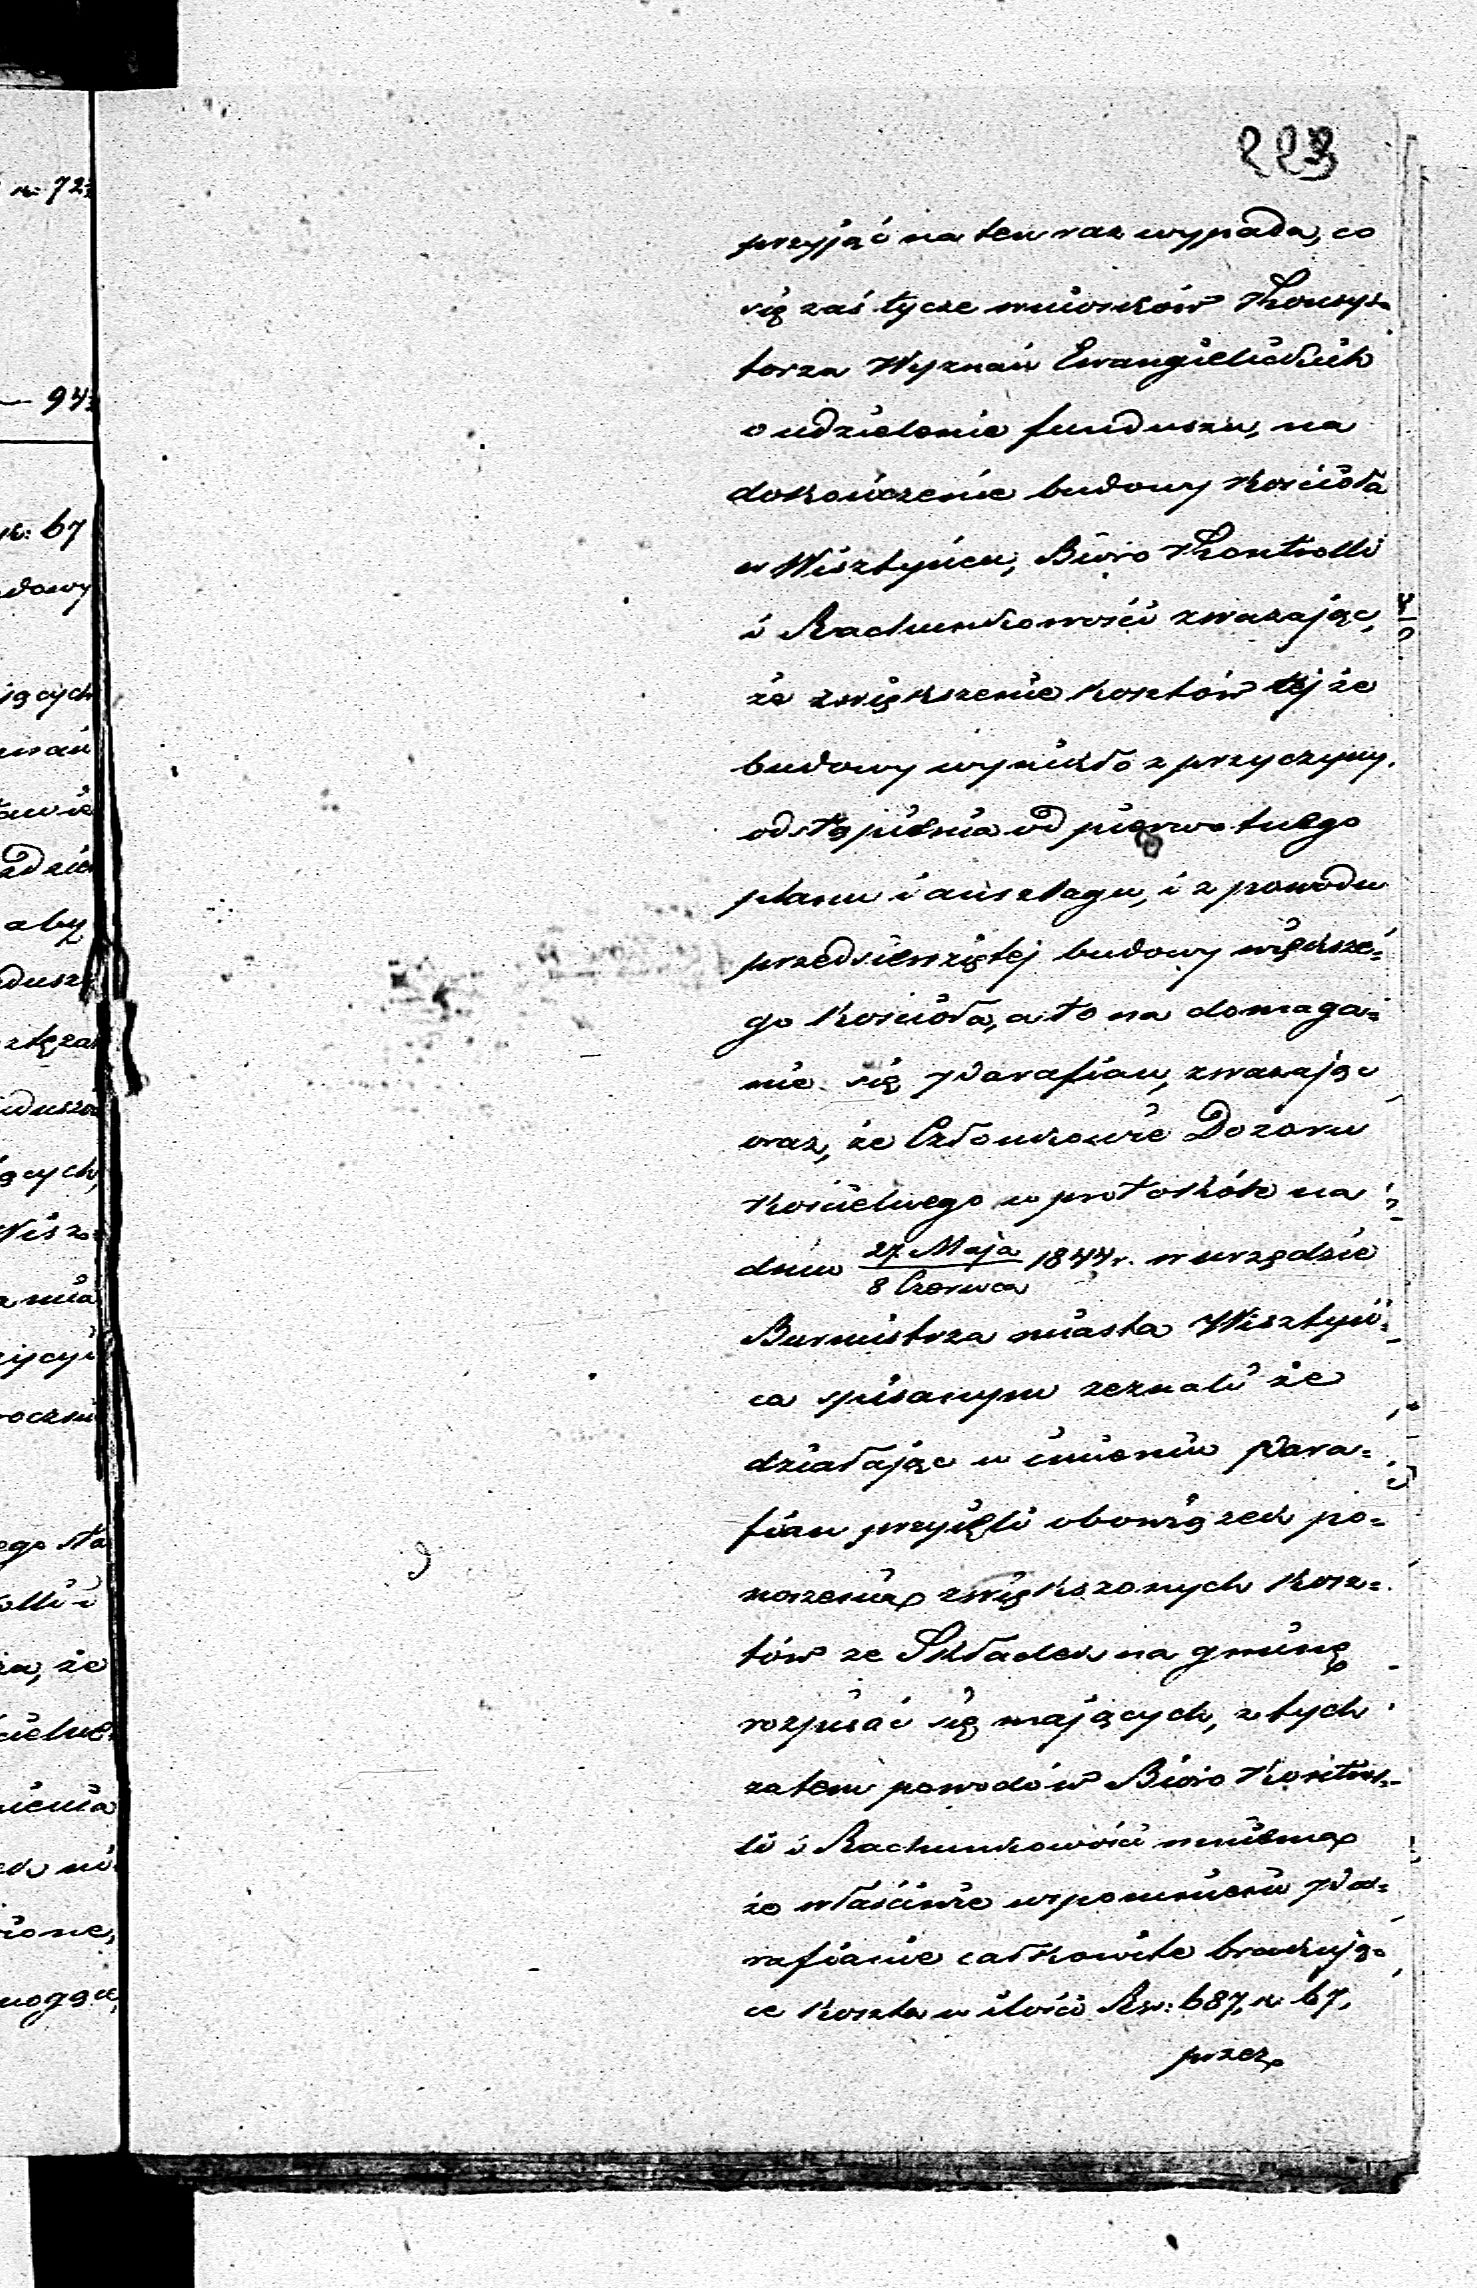 223
przyjąć na ten raz wypada, co
się zaś tycze wniosków Konsys-
torza Wyznań Ewangielickich
o udzielenie funduszu, na
dokończenie budowy Kościoła
w Wisztyńcu, Biuro Kontrolli
i Rachunkowości zważając,
że zwiększenie kosztów tej że
budowy wynikło z przyczyny
odstąpienia od pierwotnego
planu i anszlagu, i z powodu
przedsiewziętej budowy większe=
go Kościoła, a to na domaga=
nie się Parafian, zważając
oraz, że Członkowie Dozoru
Kościelnego w protokóle na
dniu 27 Maja / 8 Czerwca 1844 r. w urzędzie
Burmistrza miasta Wisztyń=
ca spisanym zeznali że
działając w imieniu Para=
fian przyięli obowiązek po=
noszenia zwiększonych kosz=
tów ze Składek na gminę
rozpisać się mających, z tych
zatem powodów Biuro Kontrol-
li i Rachunkowości mniema
że właściwie wspomnieni Pa=
rafianie całkowite brakują=
ce koszta w ilości Rsr: 687, k: 67,
przez
n: 72
94
k: 67
dowy
jących
aby
ących,
Wisz-
ego
że